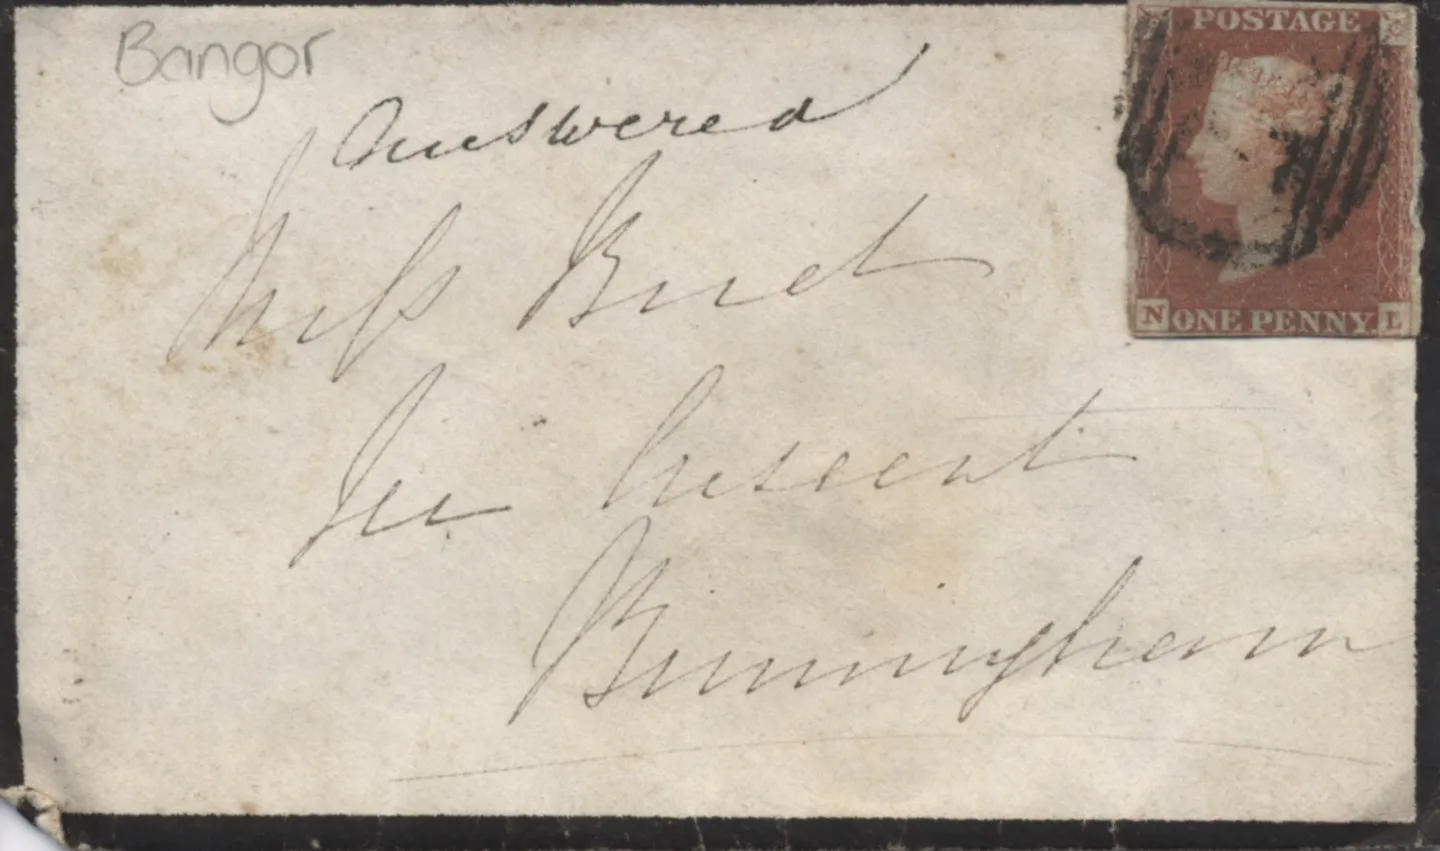 Bangor
POSTAGE
Answered
Miss Burt
Crescent
Birmingham
N ONE PENNY. L